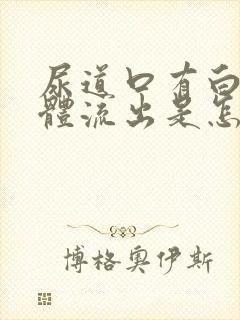 尿道口有白
體流出是怎
博格奧伊斯